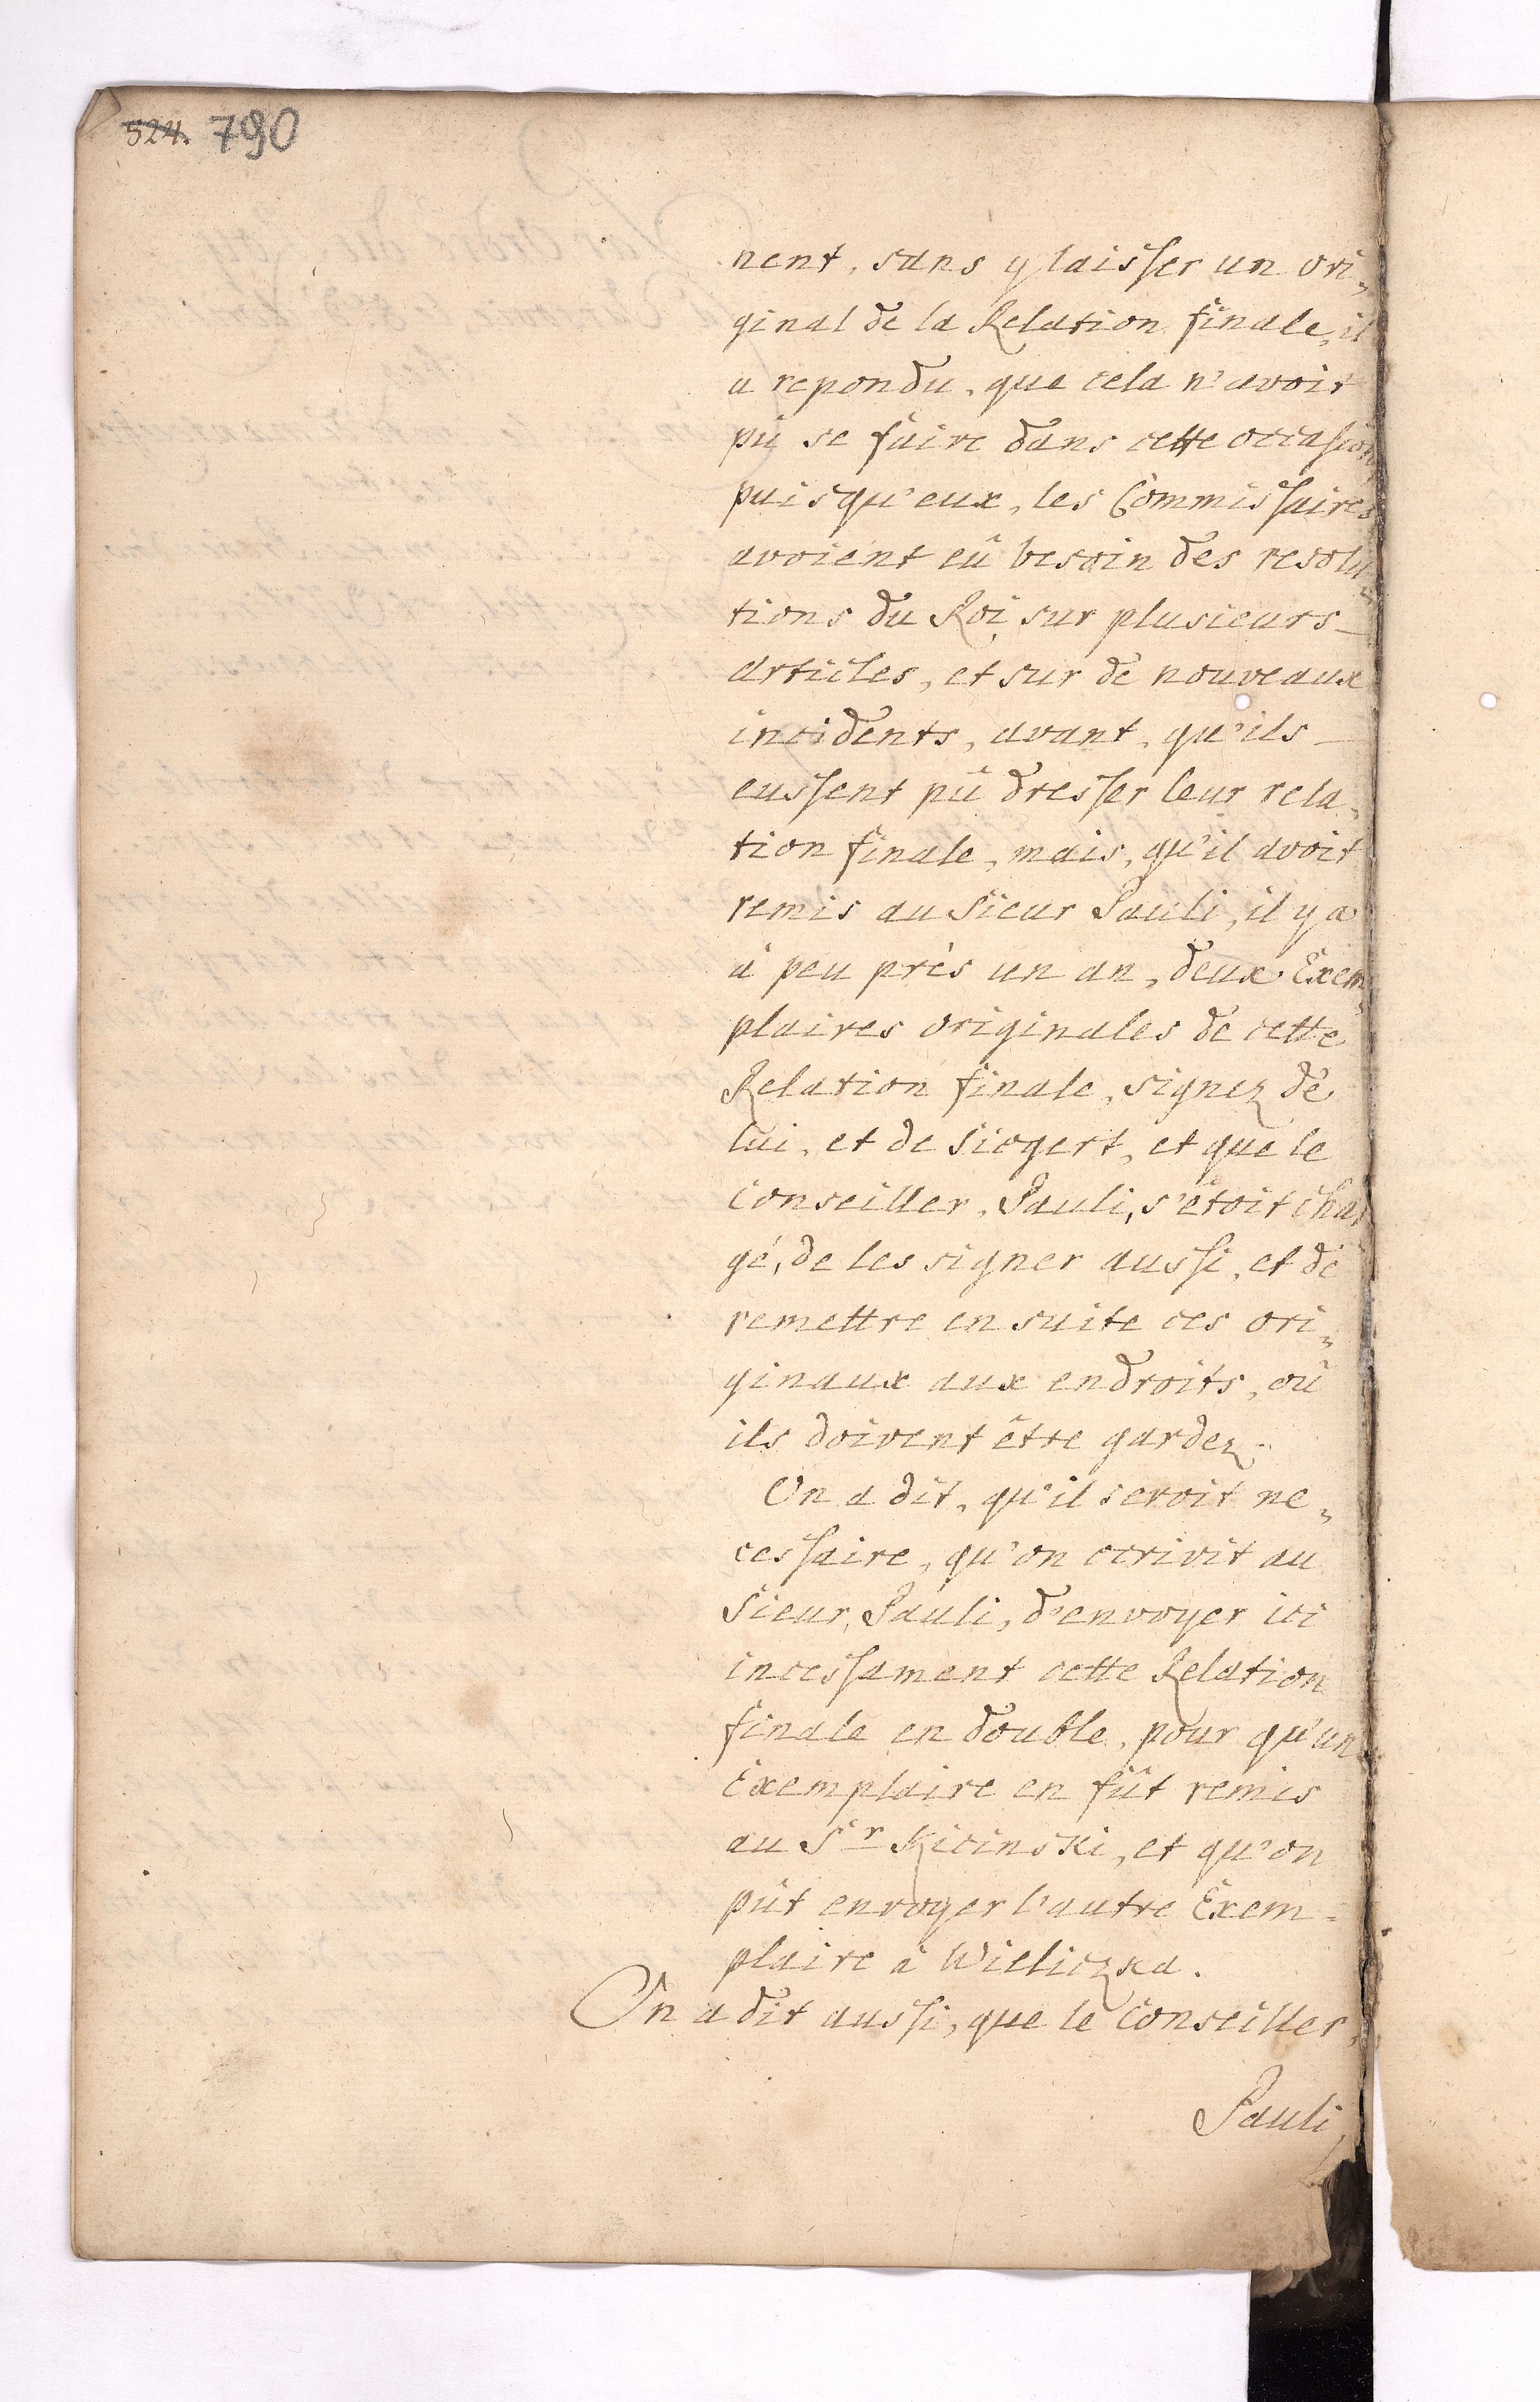 524. 790
nent, sans y laisser un ori„
ginal de la Relation finale, il
a repondu, que cela n'avoit
pû se faire dans cette occasion
puisqu'eux, les Commissaires
avoient eû besoin des resolu„
tions du Roi sur plusieurs
articles, et sur de nouveaux
incidents, avant, qu'ils
eussent pû dresser leur rela„
tion finale, mais, qu'il avoit
remis au Sieur Pauli, il y a
à peu près un an, deux Exem„
plaires originales de cette
Relation finale, signez de
lui, et de Siegert, et que le
Conseiller, Pauli, s'étoit char
gé, de les signer aussi, et de
remettre en suite ces ori„
ginaux aux endroits, où
ils doivent être gardez.
On a dit, qu'il seroit ne„
cessaire, qu'on ecrivit au
Sieur, Pauli, d'envoyer ici
incessament cette Relation
finale en double, pour qu'un
Exemplaire en fût remis
au Sr Kicinski, et qu'on
pût envoyer l'autre Exem=
plaire à Wieliczka.
On a dit aussi, que le Conseiller,
Pauli,